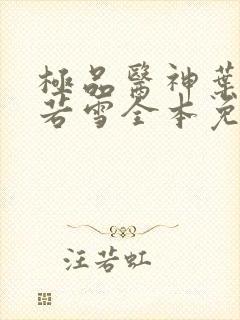 極品醫神葉
若雪全本免
汪若虹